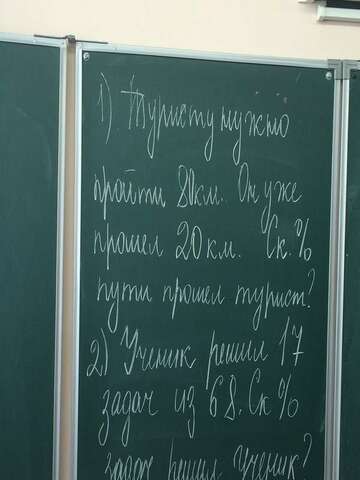 1) Туристу нужно
пройти 80км. Он уже
прошел 20км. Ск. %
пути прошел турист?
2.) Ученик решил 17
задач из 68. Ск %
задач решил ученик?